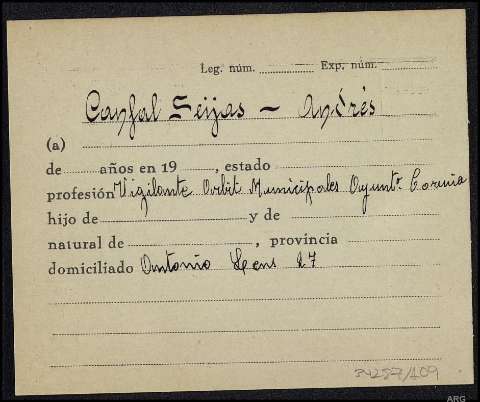 Leg. núm. Exp. núm.
Canfal Seijas - Andrés
(a)
de años en 19 , estado
profesión Vigilante Arbit Municipales Ayuntº. Coruña
hijo de y de
natural de , provincia
domiciliado Antonio Lens 27
34257/409
ARG